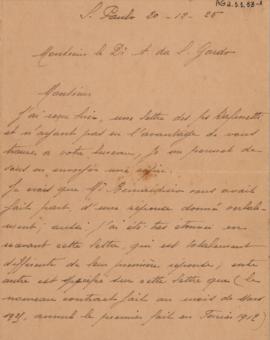 S. Paulo 20-12-25
Monsieur le Dr A. da S. Gordo
Monsieur
J'ai reçu hier, une lettre des frs
et n'ayant pas eu l'avantage de vous
trouver a votre bureau, je me permet de
vous en envoyer une copie.
Je vois que Mr vous avait
fait part, d'une reponse donné verbale-
ment, aussi j'ai été très étonné en
recevant cette lettre, qui est totalement
differente de leur première reponse; entre
autre est specifie sur cette lettre que (le
nouveau contract fait au mois de Mars
1921, annule le premier fait en Fevrier 1912)